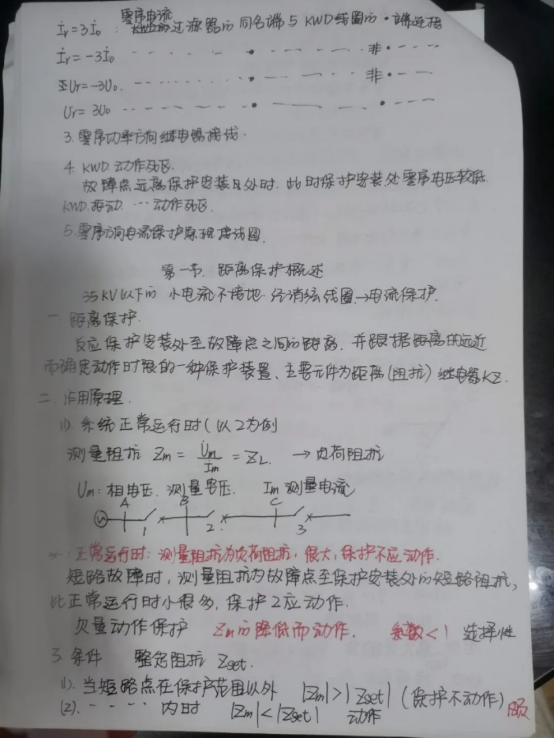 零序电流
İr=3İ0 : 过滤器的同名端与KWD线圈的·端连接
İr=-3İ0 非
Ur=-3U0 非
Ur=3U0
3.零序功率方向继电器接线.
4. KWD动作死区.
故障点远离保护安装处时.此时保护安装处零序电压较低
KWD 动作死区.
5.零序方向电流保护原理接线图.
第一节.距离保护概述
35KV以下的 小电流不接地 经消弧线圈→电流保护.
一 距离保护.
反应保护安装处至故障点之间的距离.并跟据距离的远近
而确定动作时限的一种保护装置、主要元件为距离(阻抗)继电器KZ.
二 作用原理.
1). 系统正常运行时(以2为例
测量阻抗 Zm = U̇m/İm = ZL. →负荷阻抗
Um:相电压.测量电压. Im测量电流
A B C
1 2. 3
正常运行时:测量阻抗为负荷阻抗,很大,保护不应动作.
短路故障时,测量阻抗为故障点至保护安装处的短路阻抗,
比正常运行时小很多,保护2应动作.
欠量动作保护 Zm的降低而动作. 系数<1 选择性
3.条件 整定阻抗 Zset.
1). 当短路点在保护范围以外 |Zm|>|Zset| (保护不动作)
(2). 内时 |Zm|<|Zset| 动作